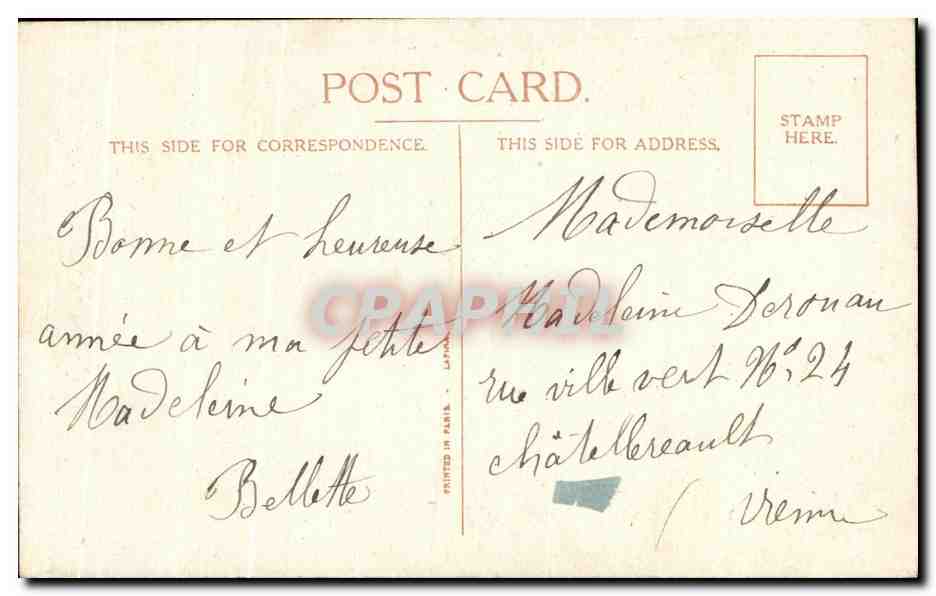 POST CARD.
THIS SIDE FOR CORRESPONDENCE.
THIS SIDE FOR ADDRESS.
STAMP
HERE.
Bonne et heureuse
année à ma petite
Madeleine
Bellotte
PRINTED IN PARIS.
Mademoiselle
Madeleine Derouau
rue ville vert No. 24
châtellereault
(Vienne
CPAPHIL